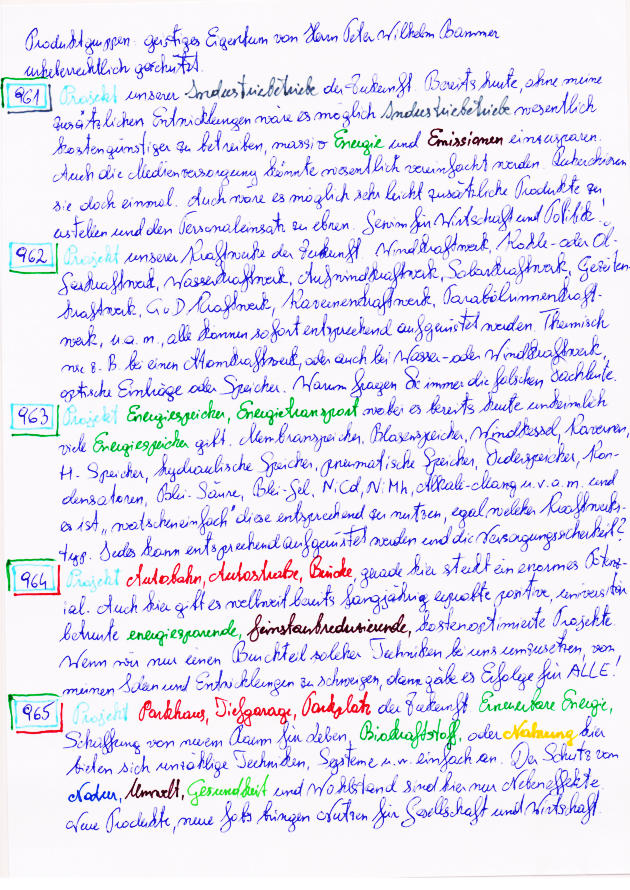 Produktgruppen: geistiges Eigentum von Herrn Peter Wilhelm Bammer
urheberrechtlich geschützt.
961 Projekt unserer Industriebetriebe der Zukunft. Bereits heute, ohne meine
zusätzlichen Entwicklungen wäre es möglich Industriebetriebe wesentlich
kostengünstiger zu betreiben, massiv Energie und Emissionen einzusparen.
Auch die Medienversorgung könnte wesentlich vereinfacht werden.
sie doch einmal. Auch wäre es möglich sehr leicht zusätzliche Produkte zu
erstellen und den Personaleinsatz zu ebnen. Gewinn für Wirtschaft und Politik!
962 Projekt unserer Kraftwerke der Zukunft. Windkraftwerk, Kohle- oder Öl-
kraftwerk, Wasserkraftwerk, Aufwindkraftwerk, Solarkraftwerk, Gezeiten
kraftwerk, G.u.D Kraftwerk, Kavernenkraftwerk, Parabolrinnenkraft-
werk, u.a.m., alle können sofort entsprechend aufgerüstet werden. Thermisch
wie z.B. bei einen Atomkraftwerk, oder auch bei Wasser- oder Windkraftwerk,
optische Einträge oder Speicher. Warum fragen Sie immer die falschen Fachleute.
963 Projekt Energiespeicher, Energietransport wobei es bereits heute unheimlich
viele Energiespeicher gibt. Membranspeicher, Blasenspeicher, Windkessel, Kavernen,
H-Speicher, hydraulische Speicher, pneumatische Speicher, Federspeicher, Kon-
densatoren, Blei-Säure, Blei-Gel, NiCd, NiMh, Alkali-Mangan u.v.a.m. und
es ist „watscheneinfach" diese entsprechend zu nutzen, egal welcher Kraftwerks-
typ. Jedes kann entsprechend aufgerüstet werden und die Versorgungssicherheit?
964 Projekt Autobahn, Autostraße, Brücke, gerade hier steckt ein enormes Potenz-
ial. Auch hier gibt es weltweit bereits langjährig erprobte positive, universitär
betreute energiesparende, feinstaubreduzierende, kostenoptimierte Projekte.
Wenn wir nur einen Bruchteil solcher Techniken bei uns umzusetzen, von
meinen Ideen und Entwicklungen zu schweigen, dann gäbe es Erfolge für ALLE!
965 Projekt Parkhaus, Tiefgarage, Parkplatz der Zukunft. Erneuerbare Energie,
Schaffung von neuem Raum für Leben, Biokraftstoff, oder Nahrung hier
bieten sich unzählige Techniken, Systeme u.w. einfach an. Der Schutz von
Natur, Umwelt, Gesundheit und Wohlstand sind hier nur Nebeneffekte.
Neue Produkte, neue Jobs bringen Nutzen für Gesellschaft und Wirtschaft.